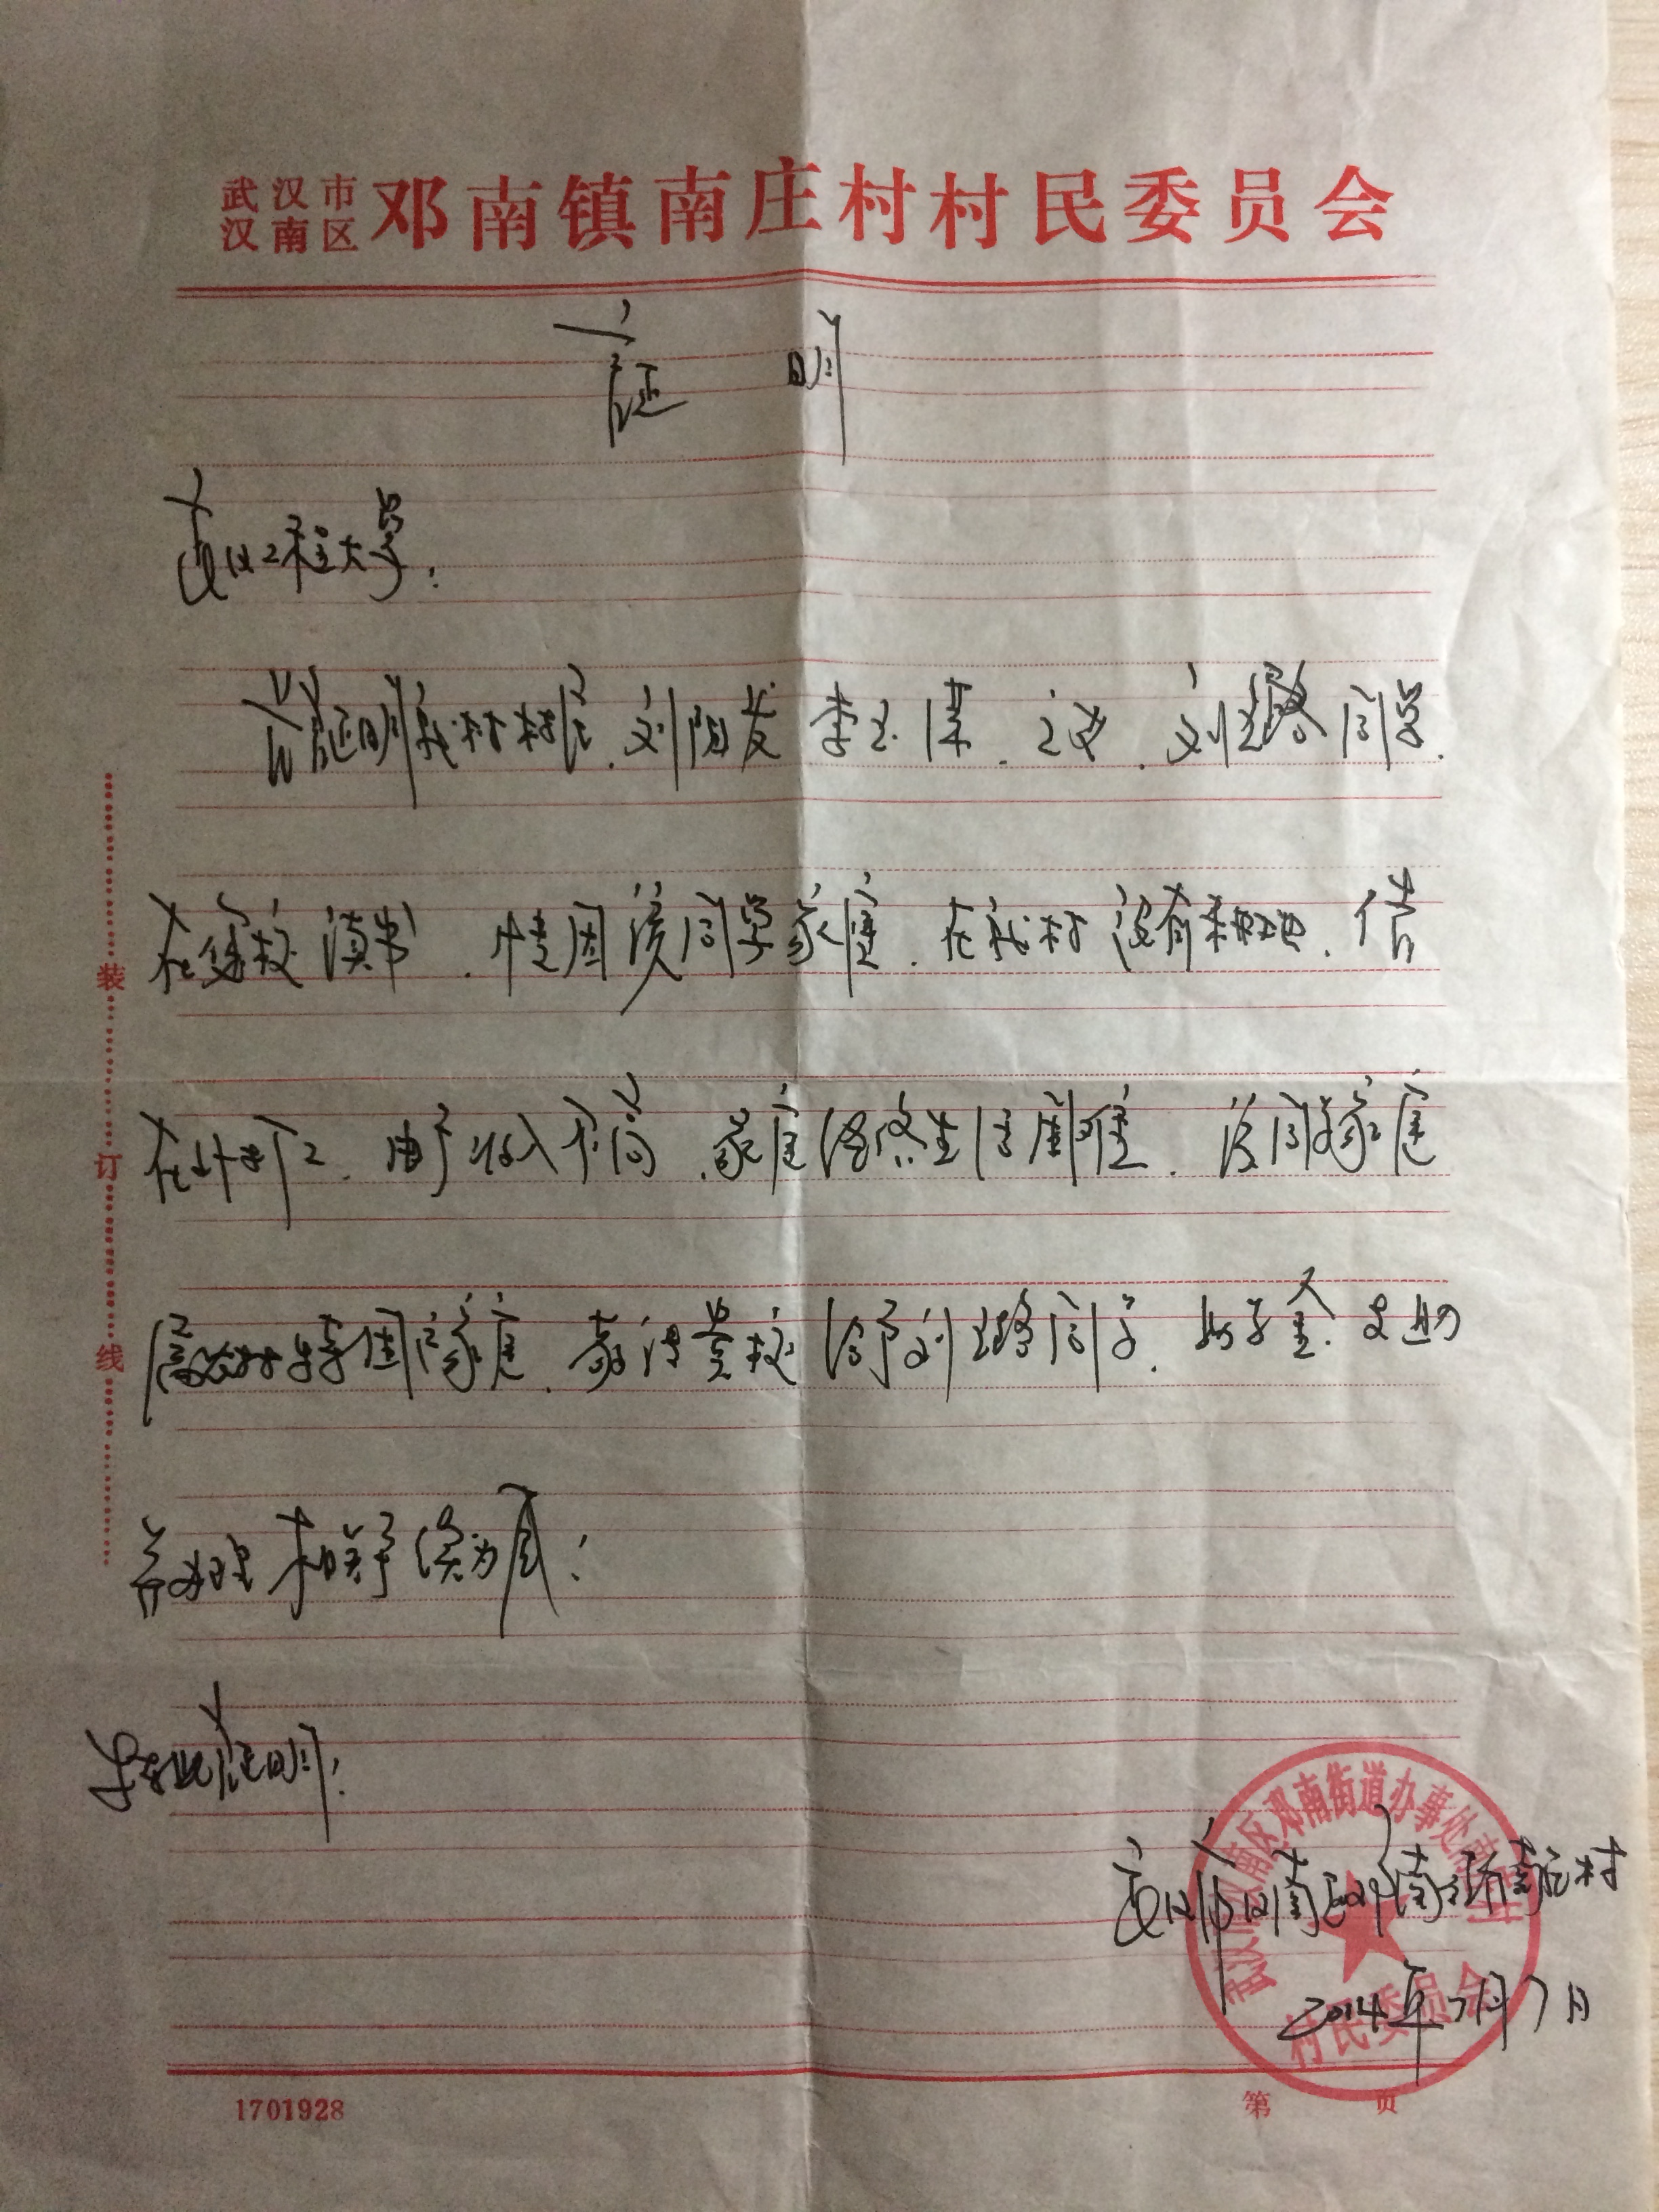 武汉市
汉南区 邓南镇南庄村村民委员会
证 明
武汉工程大学:
兹证明我村村民.刘阳发 李玉 .之女.刘璐同学.
在贵校读书.特因该同学家庭.在我村没有种地.借
在外打工.由于收入不高.家庭仍然生活困难.该同学家庭
属农村特困家庭.敬请贵校给予刘璐同学.助学金.
办理 相关手续为感!
特此证明!
武汉市汉南区邓南街南庄村
2014年7月7日
武汉市汉南区邓南街道办事处南庄村
村民委员会
装
订
线
1701928
第 页